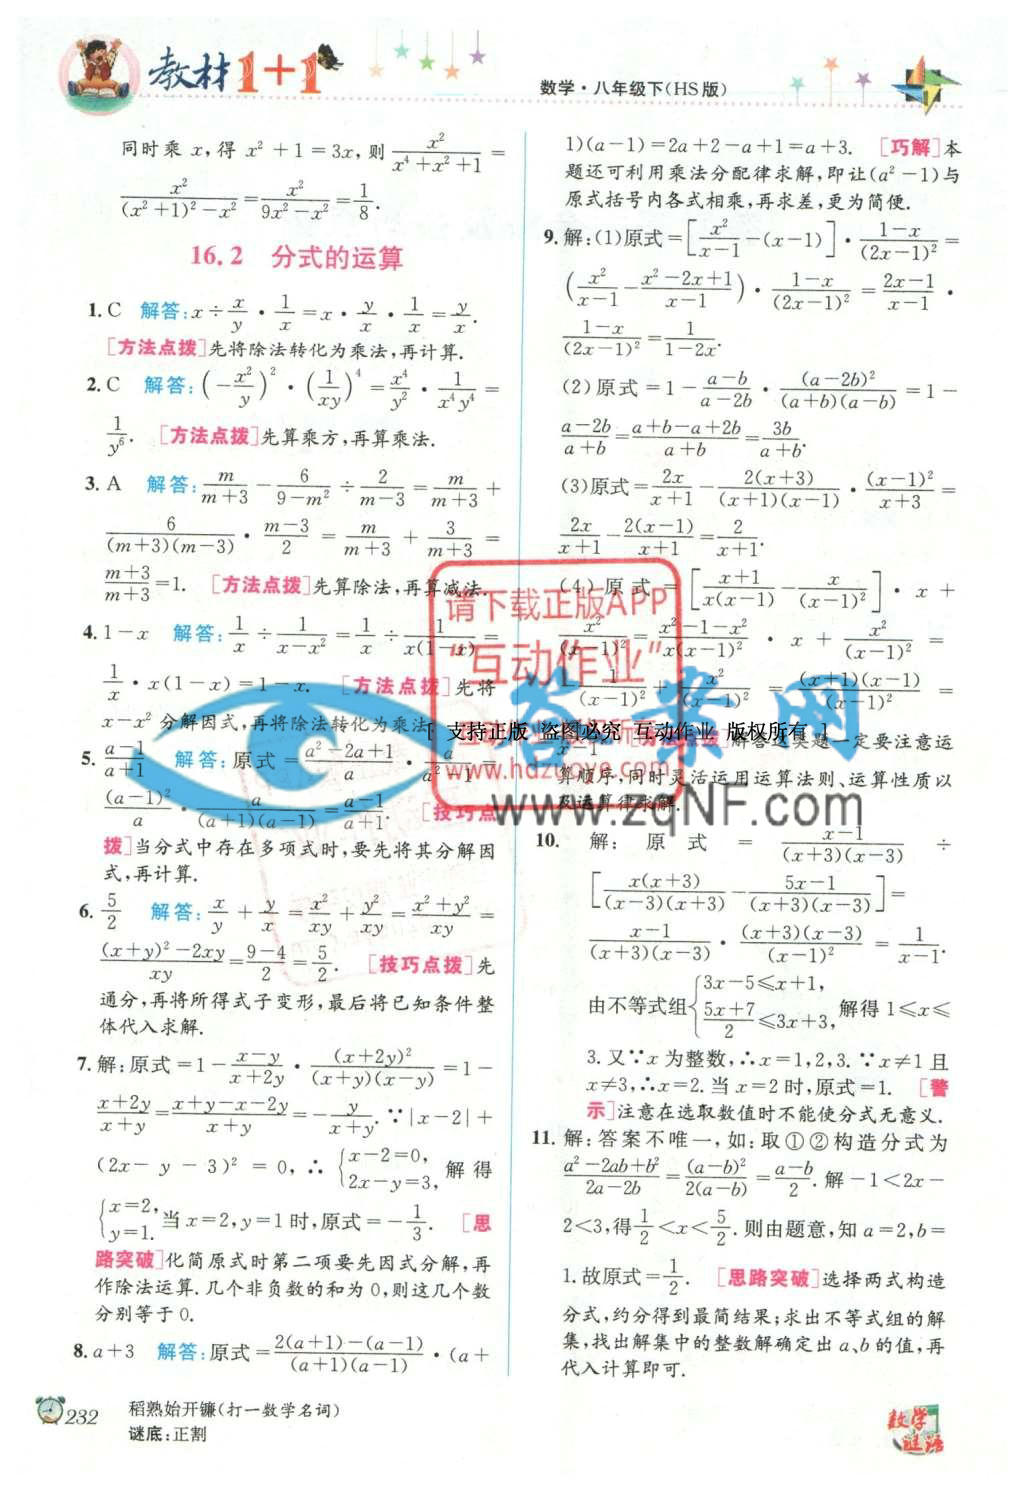 教材1+1
数学·八年级下(HS版)
同时乘 x,得 x²+1=3x,则 x²/(x⁴+x²+1)=
x²/((x²+1)²-x²)=x²/(9x²-x²)=1/8.
16.2 分式的运算
1. C 解答:x÷x/y·1/x=x·y/x·1/x=y/x.
[方法点拨]先将除法转化为乘法,再计算.
2. C 解答:(-x²/y)²·(1/xy)⁴=x⁴/y²·1/(x⁴y⁴)=
1/y⁶. [方法点拨]先算乘方,再算乘法.
3. A 解答:m/(m+3)-6/(9-m²)÷2/(m-3)=m/(m+3)+
6/((m+3)(m-3))·(m-3)/2=m/(m+3)+3/(m+3)=
(m+3)/(m+3)=1. [方法点拨]先算除法,再算减法.
4. 1-x 解答:1/x÷1/(x-x²)=1/x÷1/(x(1-x))=
1/x·x(1-x)=1-x. [方法点拨]先将
x-x²分解因式,再将除法转化为乘法
5. (a-1)/(a+1) 解答:原式=(a²-2a+1)/a·a/(a²-1)=
(a-1)²/a·a/((a+1)(a-1))=(a-1)/(a+1). [技巧点
拨]当分式中存在多项式时,要先将其分解因
式,再计算.
6. 5/2 解答:x/y+y/x=x²/xy+y²/xy=(x²+y²)/xy=
((x+y)²-2xy)/xy=(9-4)/2=5/2. [技巧点拨]先
通分,再将所得式子变形,最后将已知条件整
体代入求解.
7. 解:原式=1-(x-y)/(x+2y)·(x+2y)²/((x+y)(x-y))=1-
(x+2y)/(x+y)=(x+y-x-2y)/(x+y)=-y/(x+y).∵|x-2|+
(2x-y-3)²=0,∴{x-2=0, 2x-y=3,解得
{x=2, y=1.当x=2,y=1时,原式=-1/3. [思
路突破]化简原式时第二项要先因式分解,再
作除法运算.几个非负数的和为0,则这几个数
分别等于0.
8. a+3 解答:原式=(2(a+1)-(a-1))/((a+1)(a-1))·(a+
1)(a-1)=2a+2-a+1=a+3. [巧解]本
题还可利用乘法分配律求解,即让(a²-1)与
原式括号内各式相乘,再求差,更为简便.
9. 解:(1)原式=[x²/(x-1)-(x-1)]·(1-x)/(2x-1)²=
(x²/(x-1)-(x²-2x+1)/(x-1))·(1-x)/(2x-1)²=(2x-1)/(x-1)·
(1-x)/(2x-1)²=1/(1-2x).
(2)原式=1-(a-b)/(a-2b)·(a-2b)²/((a+b)(a-b))=1-
(a-2b)/(a+b)=(a+b-a+2b)/(a+b)=3b/(a+b).
(3)原式=2x/(x+1)-2(x+3)/((x+1)(x-1))·(x-1)²/(x+3)=
2x/(x+1)-2(x-1)/(x+1)=2/(x+1).
(4)原式=[(x+1)/(x(x-1))-x/(x-1)²]·x+
x²/(x-1)²=(x²-1-x²)/(x(x-1)²)·x+x²/(x-1)²=
1/(x-1)²+x²/(x-1)²=(x+1)(x-1)/(x-1)²=
x-1 [方法点拨]解答这类题一定要注意运
算顺序,同时灵活运用运算法则、运算性质以
及运算律求解.
10. 解:原式=(x-1)/((x+3)(x-3))÷
[x(x+3)/((x-3)(x+3))-(5x-1)/((x+3)(x-3))]=
(x-1)/((x+3)(x-3))·(x+3)(x-3)/(x-1)²=1/(x-1).
由不等式组{3x-5≤x+1, (5x+7)/2≤3x+3,解得1≤x≤
3.又∵x为整数,∴x=1,2,3.∵x≠1且
x≠3,∴x=2.当x=2时,原式=1. [警
示]注意在选取数值时不能使分式无意义.
11. 解:答案不唯一,如:取①②构造分式为
(a²-2ab+b²)/(2a-2b)=(a-b)²/(2(a-b))=(a-b)/2.解-1<2x-
2<3,得1/2<x<5/2.则由题意,知a=2,b=
1.故原式=1/2. [思路突破]选择两式构造
分式,约分得到最简结果;求出不等式组的解
集,找出解集中的整数解确定出a、b的值,再
代入计算即可.
请下载正版APP
“互动作业”
www.hdzuoye.com
支持正版 盗图必究 互动作业 版权所有
答案网
www.zqNF.com
232
稻熟始开镰(打一数学名词)
谜底:正割
数学谜语